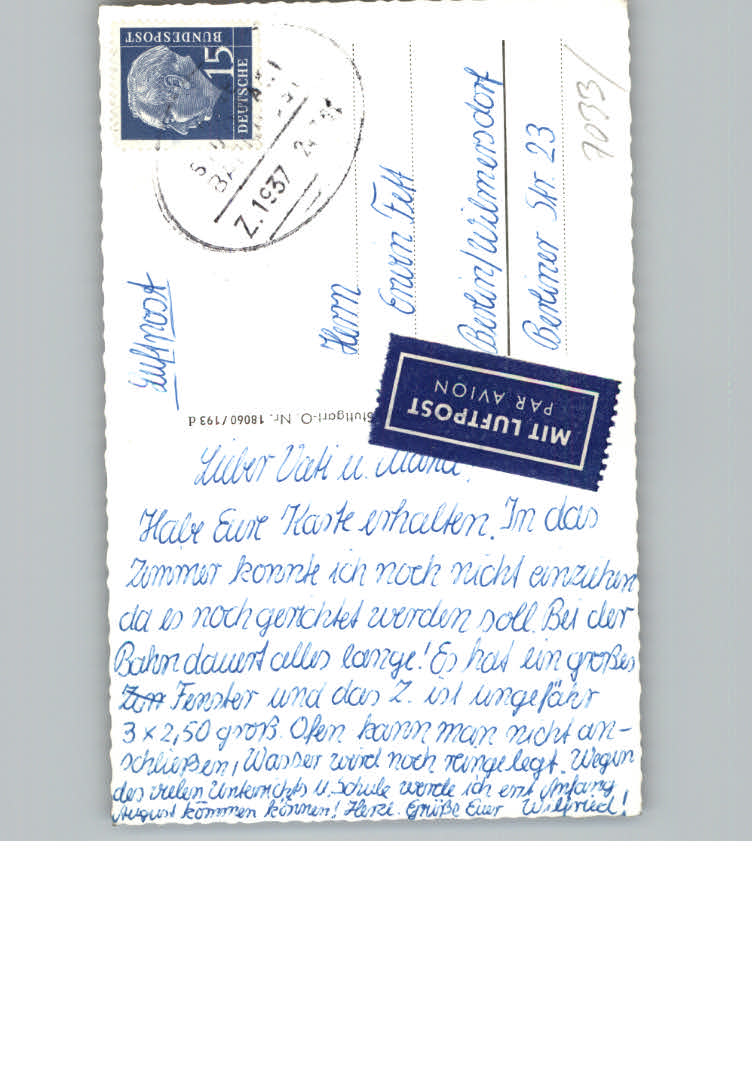 DEUTSCHE
BUNDESPOST
15
Z.1937
Luftpost
Herrn
Erwin Fett
Berlin/Wilmersdorf
Berliner Str. 23
MIT LUFTPOST
PAR AVION
Stuttgart-O. Nr. 18060/193 d
Lieber Vati u.
Habe Eure Karte erhalten. In das
Zimmer konnte ich noch nicht einziehen
da es noch gerichtet werden soll. Bei der
Bahn dauert alles lange! Es hat ein großes
Fenster und das Z. ist ungefähr
3 x 2,50 groß. Ofen kann man nicht an-
schließen, Wasser wird noch reingelegt. Wegen
des vielen Unterrichts u. Schule werde ich erst Anfang
August kommen können! Herzl. Grüße Euer Wilfried!